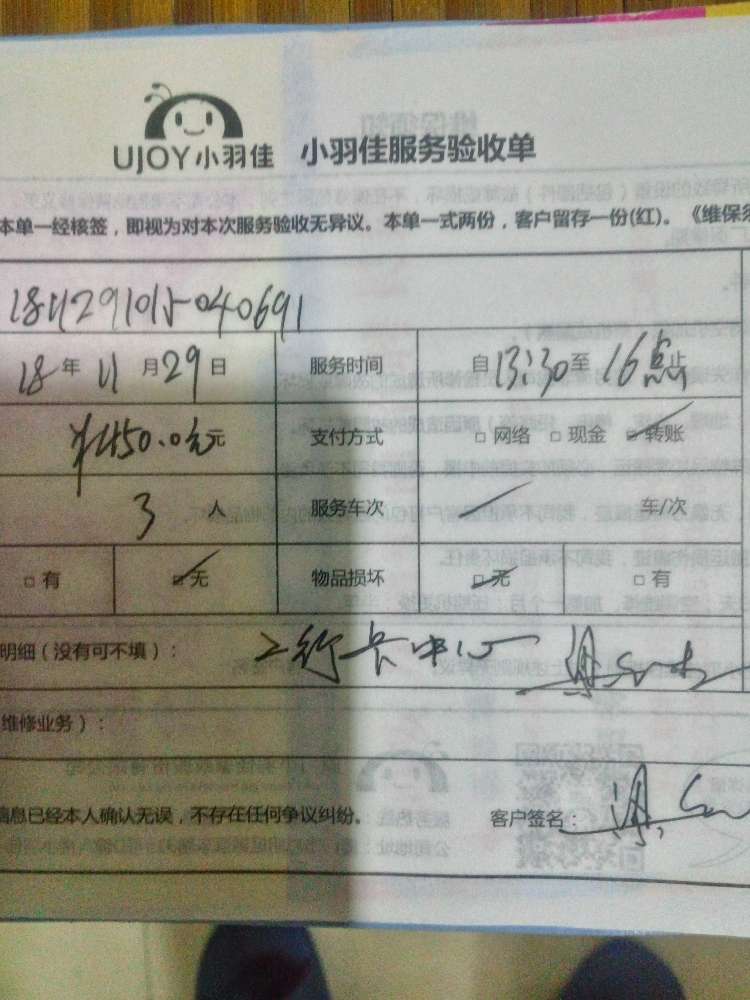 UJOY小羽佳 小羽佳服务验收单
本单一经核签，即视为对本次服务验收无异议。本单一式两份，客户留存一份(红)。《维保须
18年11月29日 服务时间 自13:30至16点止
¥450.0元 支付方式 □ 网络 □ 现金 ☑ 转账
3人 服务车次 车/次
□ 有 ☑ 无 物品损坏 ☑ 无 □ 有
明细（没有可不填）： 工行卡中心
维修业务）：
信息已经本人确认无误，不存在任何争议纠纷。 客户签名：